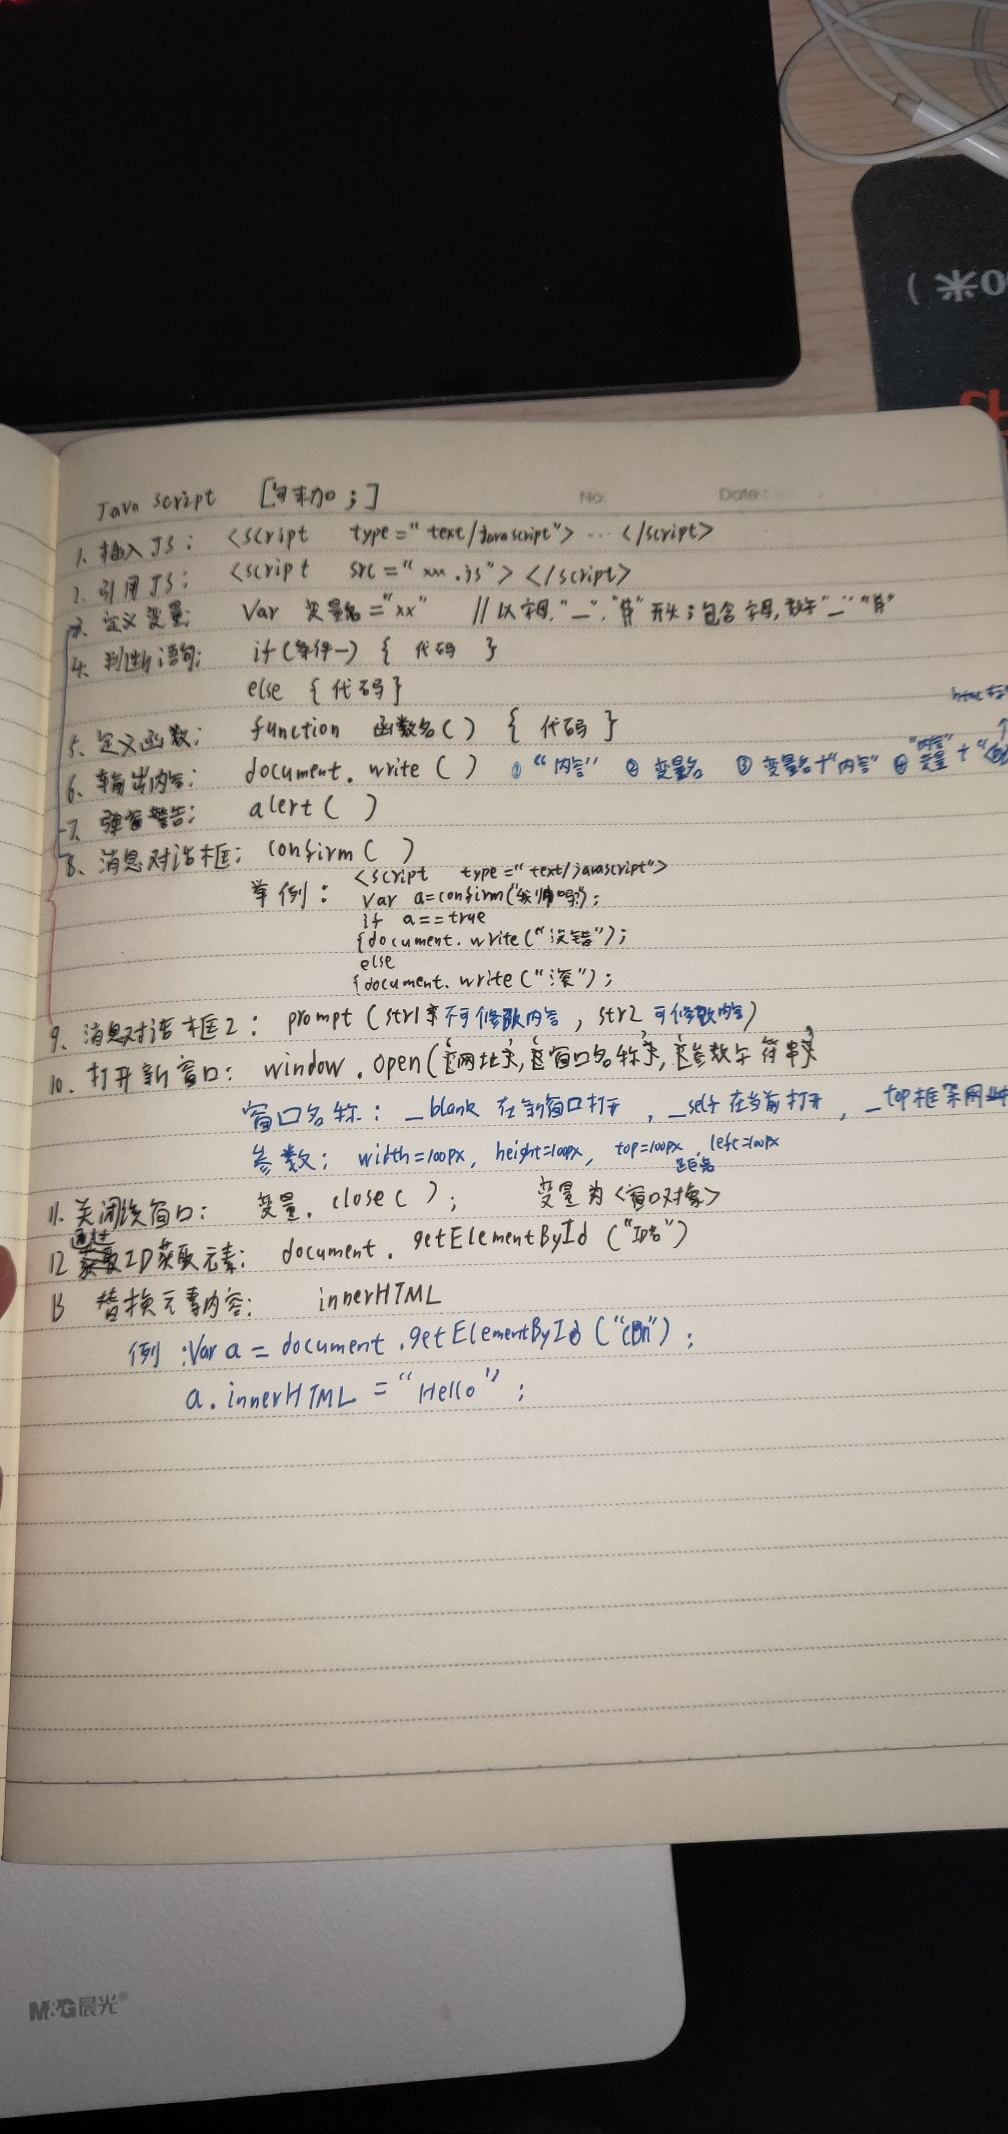 00米）
Java script [句末加；]
No.
Date:
1. 插入JS: <script type="text/javascript"> ... </script>
2. 引用JS: <script src="xxx.js"></script>
3. 定义变量: Var 变量名="xx" //以字母,"_",
4. 判断语句: if(条件一) { 代码 }
else {代码}
5. 定义函数: function 函数名() { 代码 }
6. 输出内容: document.write() ① "内容" ② 变量名 ③ 变量名+"内容" ④ "内容" 变量 +
7. 弹窗警告: alert()
8. 消息对话框: confirm()
举例: <script type="text/javascript">
Var a=confirm("我帅吗");
if a==true
{document.write("没错");
else
{document.write("滚");
9. 消息对话框2: prompt (str1 不可修改内容, str2 可修改内容)
10. 打开新窗口: window.open(网址, 窗口名称, 参数字符串
窗口名称: _blank 在新窗口打开, _self 在当前打开, _top框架网
参数: width=100px, height=100px, top=100px, left=100px
11. 关闭该窗口: 变量.close(); 变量为<窗口对象>
12 通过ID获取元素: document.getElementById ("ID名")
13 替换元素内容: innerHTML
例:Var a = document.getElementById ("con");
a.innerHTML = "Hello";
M&G晨光®